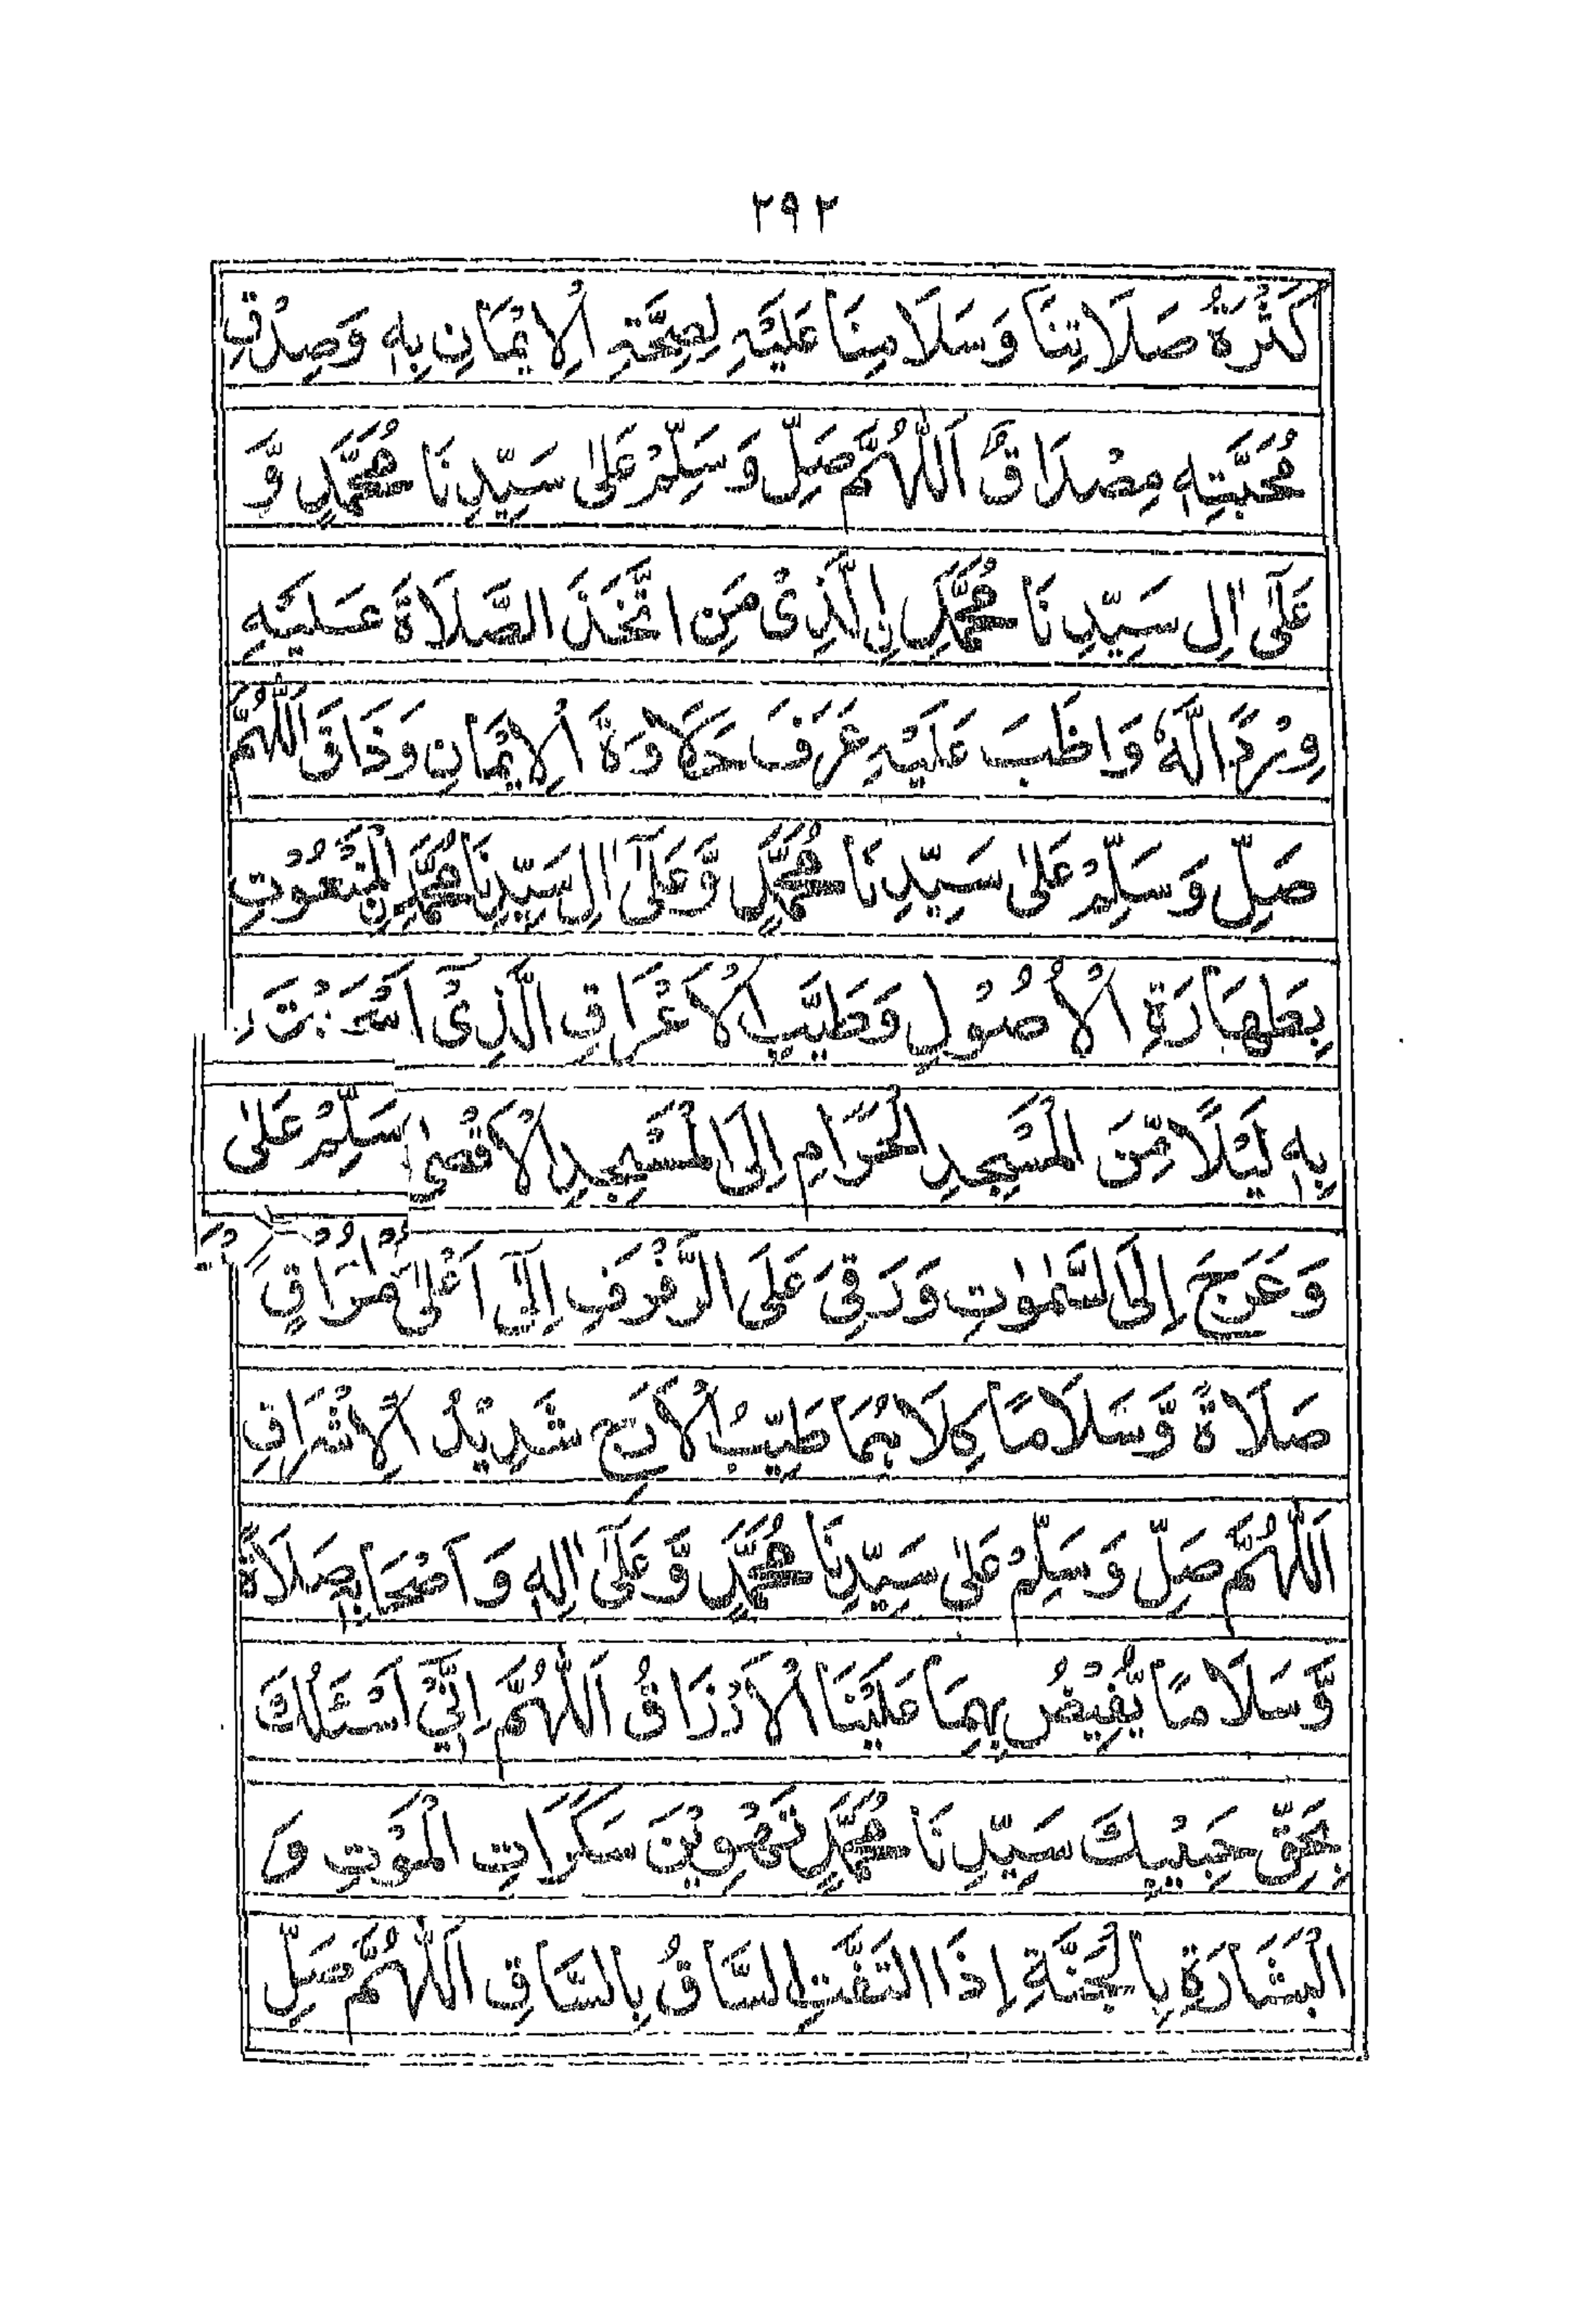 ٢٩٢
كَثْرَةُ صَلَاتِنَا وَسَلَامِنَا عَلَيْهِ لِصِحَّةِ الْاِيْمَانِ بِهٖ وَصِدْقِ
مُحَبَّتِهٖ مِصْدَاقٌ اَللّٰهُمَّ صَلِّ وَسَلِّمْ عَلٰى سَيِّدِنَا مُحَمَّدٍ وَّ
عَلٰٓى اٰلِ سَيِّدِنَا مُحَمَّدِ اِلَّذِىْ مَنِ اتَّخَذَ الصَّلَاةَ عَلَيْهِ
وِرْدًا لَّهٗ وَاظَبَ عَلَيْهِ عَرَفَ حَلَاوَةَ الْاِيْمَانِ وَذَاقَ اَللّٰهُمَّ
صَلِّ وَسَلِّمْ عَلٰى سَيِّدِنَا مُحَمَّدٍ وَّعَلٰٓى اٰلِ سَيِّدِنَا مُحَمَّدِنِ الْمَنْعُوْتِ
بِطَهَارَةِ الْاُصُوْلِ وَطَيِّبِ الْاَعْرَاقِ الَّذِىْٓ
بِهٖ لَيْلًا مِّنَ الْمَسْجِدِ الْحَرَامِ اِلَى الْمَسْجِدِ الْاَقْصٰى سَلِّمْ عَلٰى
وَعَرَجَ اِلَى السَّمٰوٰتِ وَرَقِىَ عَلَى الرَّفْرَفِ اِلٰٓى اَعْلٰى مَرَاقٍ
صَلَاةً وَّسَلَامًا كِلَاهُمَا طَيِّبُ الْاَرَجِ شَدِيْدُ الْاِشْرَاقِ
اَللّٰهُمَّ صَلِّ وَسَلِّمْ عَلٰى سَيِّدِنَا مُحَمَّدٍ وَّعَلٰٓى اٰلِهٖ وَاَصْحَابِهٖ صَلَاةً
وَّسَلَامًا يُّفِيْضُ بِهِمَا عَلَيْنَا الْاَرْزَاقُ اَللّٰهُمَّ اِنِّىْٓ اَسْئَلُكَ
بِحَقِّ حَبِيْبِكَ سَيِّدِنَا مُحَمَّدٍ تَهْوِيْنَ سَكَرَاتِ الْمَوْتِ وَ
الْبَشَارَةِ بِالْجَنَّةِ اِذَا الْتَفَّتِ السَّاقُ بِالسَّاقِ اَللّٰهُمَّ صَلِّ